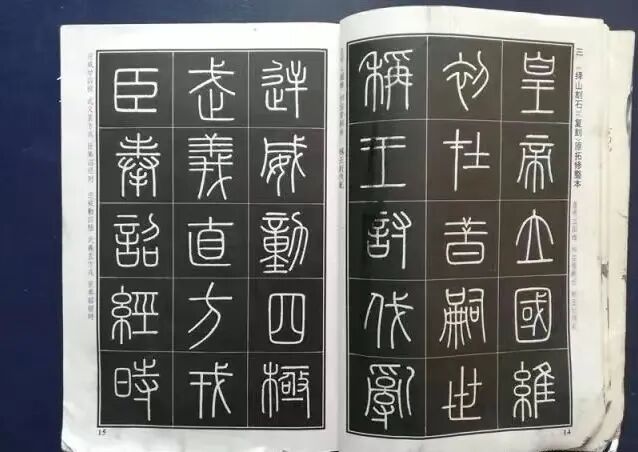 三 《绎山刻石》（复刻）原拓修整本
皇帝立國維
初在昔嗣世
稱王討伐亂
14
逆威動四極
武義直方戎
臣奉詔經時
15